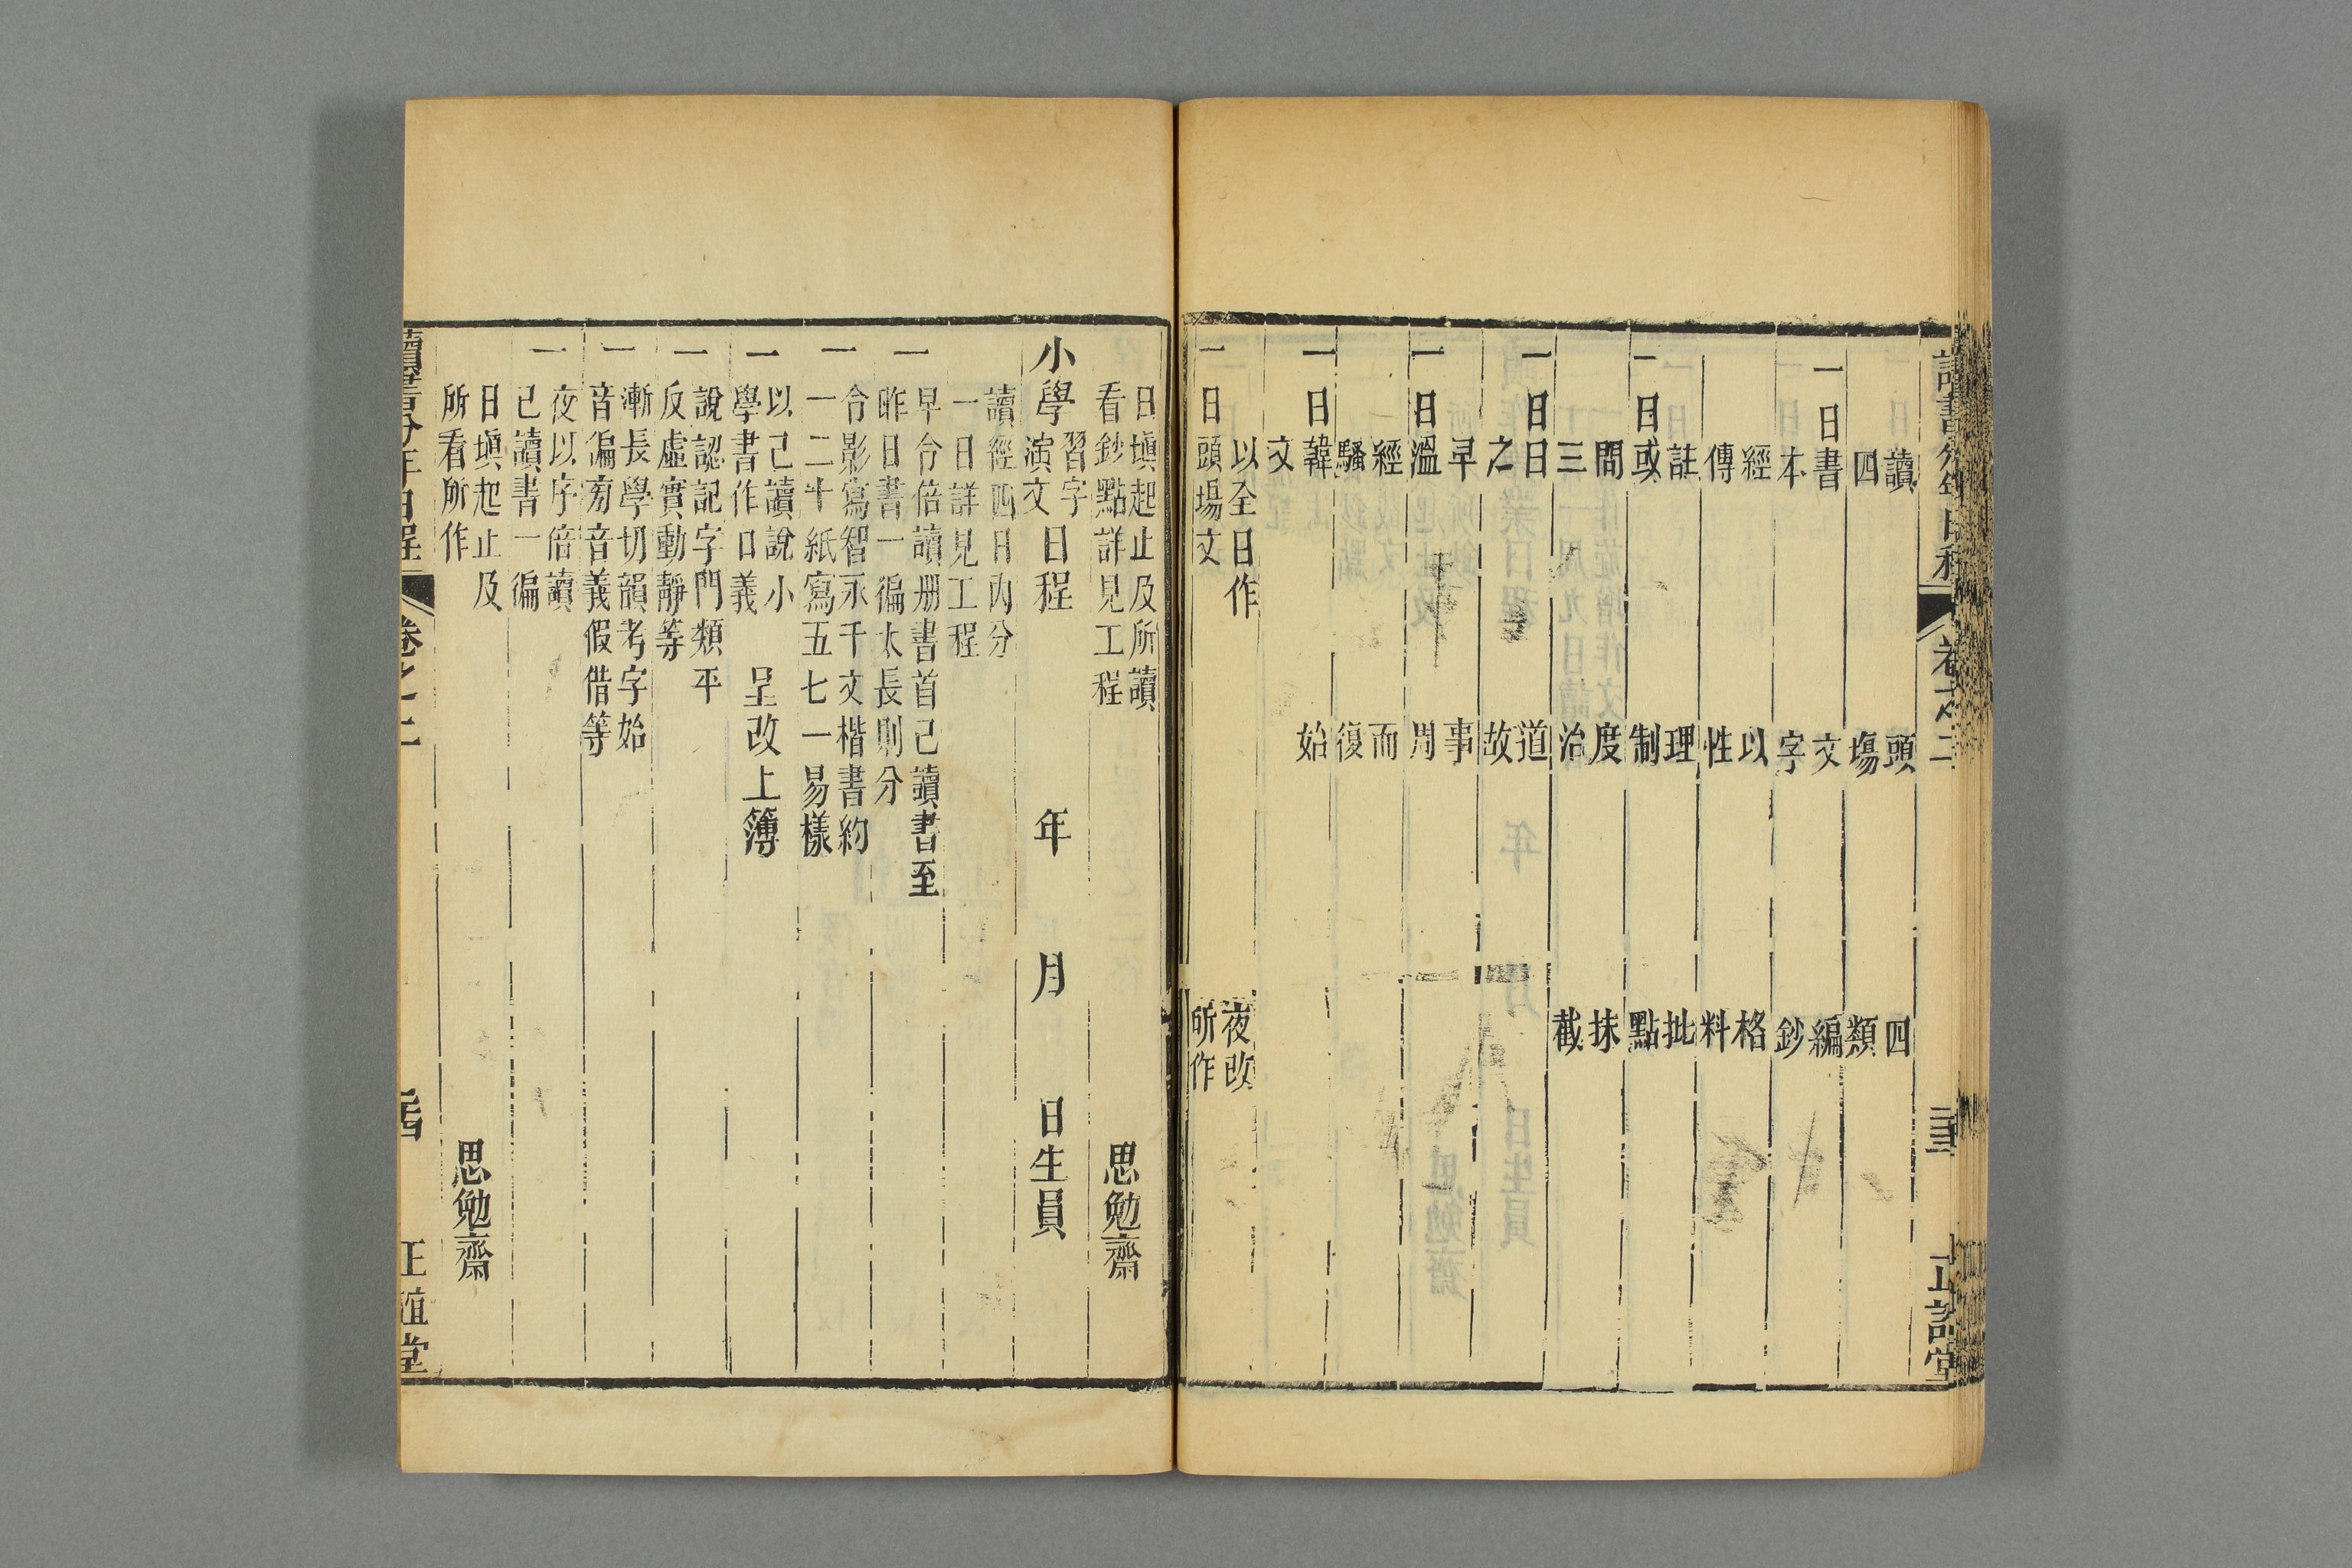 讀書分年日程 卷之二 正誼堂
讀 頭 四
四 場 類
一日書 文 編
本 字 鈔
經 以 格
傳 性 料
註 理 批
一日或 制 點
間 度 抹
三 治 截
一日日 道
之 故
早 事
一日溫 周
經 而
騷 復
一日韓 始
文
以全日作 夜改
一日頭場文 所作
日塡起止及所讀
看鈔點詳見工程 思勉齋
小學習字演文日程 年 月 日生員
讀經四日內分
一日詳見工程
一早令倍讀册書首已讀書至
昨日書一徧太長則分
一令影寫智永千文楷書約
一二十紙寫五七一易樣
一以已讀說小
學書作口義 呈改上簿
一說認記字門類平
反虛實動靜等
一漸長學切韻考字始
音偏旁音義假借等
一夜以序倍讀
已讀書一徧
日塡起止及
所看所作 思勉齋
讀書分年日程 卷之二 正誼堂